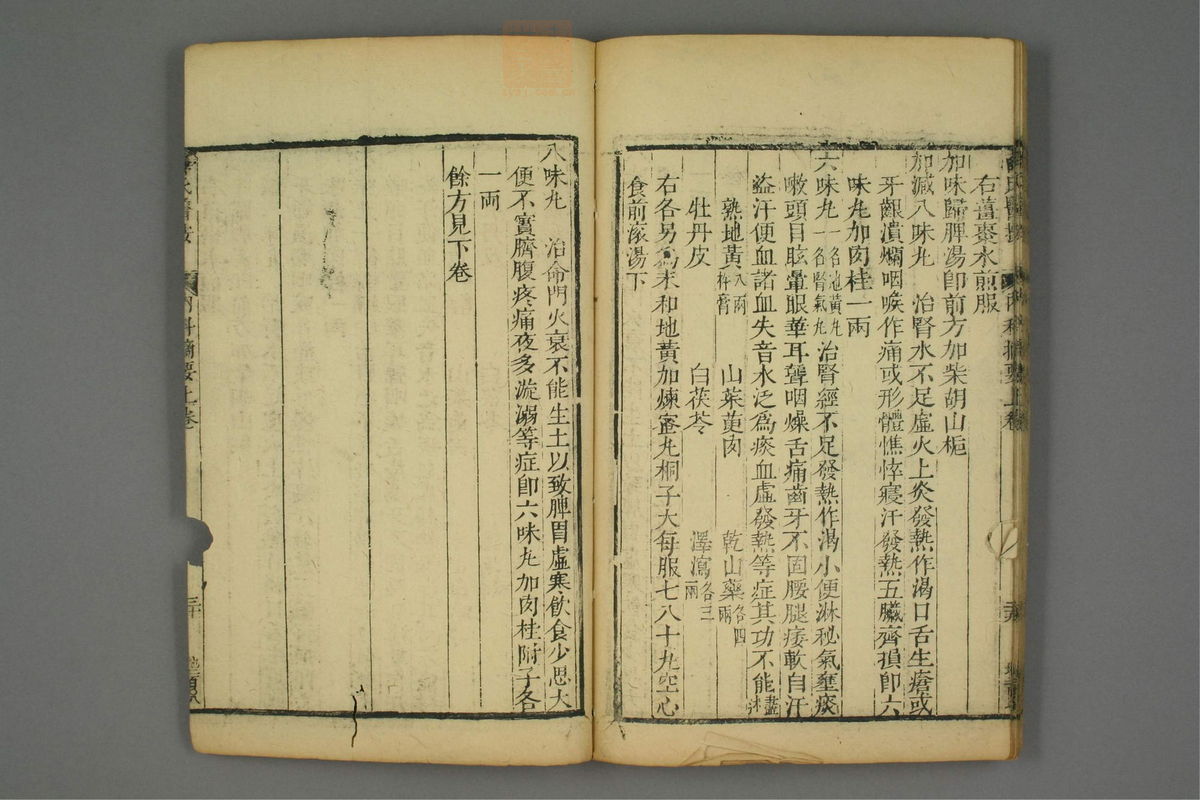 右薑棗水煎服
加味歸脾湯即前方加柴胡山梔
加減八味丸　治腎水不足虛火上炎發熱作渴口舌生瘡或
牙齦潰爛咽喉作痛或形體憔悴寢汗發熱五臟齊損即六
味丸加肉桂一兩
六味丸一名地黃丸一名腎氣丸治腎經不足發熱作渴小便淋秘氣壅痰
嗽頭目眩暈眼華耳聾咽燥舌痛齒牙不固腰腿痿軟自汗
盜汗便血諸血失音水泛爲痰血虛發熱等症其功不能盡述
熟地黃八兩杵膏　山茱萸肉　乾山藥各四兩
牡丹皮　白茯苓　澤瀉各三兩
右各另爲末和地黃加煉蜜丸桐子大每服七八十丸空心
食前滾湯下
八味丸　治命門火衰不能生土以致脾胃虛寒飲食少思大
便不實臍腹疼痛夜多漩溺等症即六味丸加肉桂附子各
一兩
餘方見下卷
內科摘要上卷